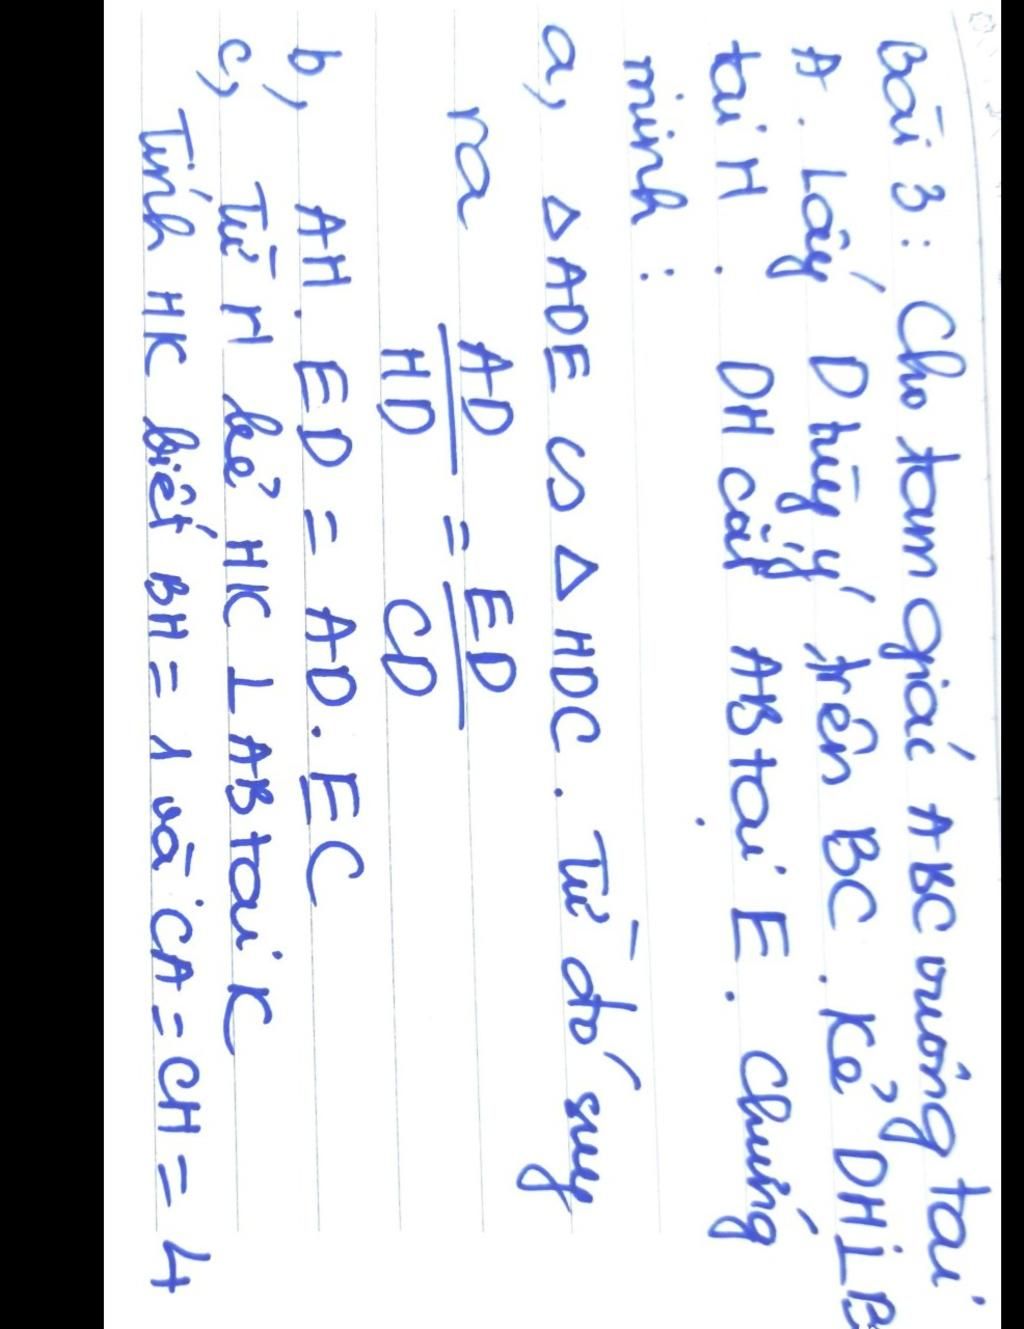 Bài 3: Cho tam giác ABC vuông tại
A. Lấy D tùy ý trên BC. Kẻ DH⊥B
tại H. DH cắt AB tại E. Chứng
minh:
a, △ADE ∽ △HDC. Từ đó suy
ra AD/HD = ED/CD
b, AH.ED = AD.EC
c, Từ H kẻ HK ⊥ AB tại K
Tính HK biết BH = 1 và CA = CH = 4